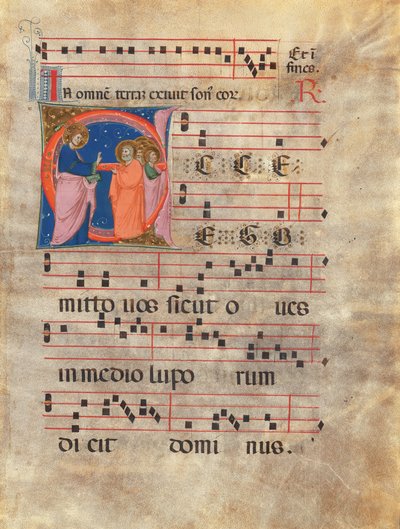 Et ī
fines.
IN omnē terrā exiuit son' eor. R
E C C E
E G O
mitto uos sicut oues
in medio luporum
dicit dominus.